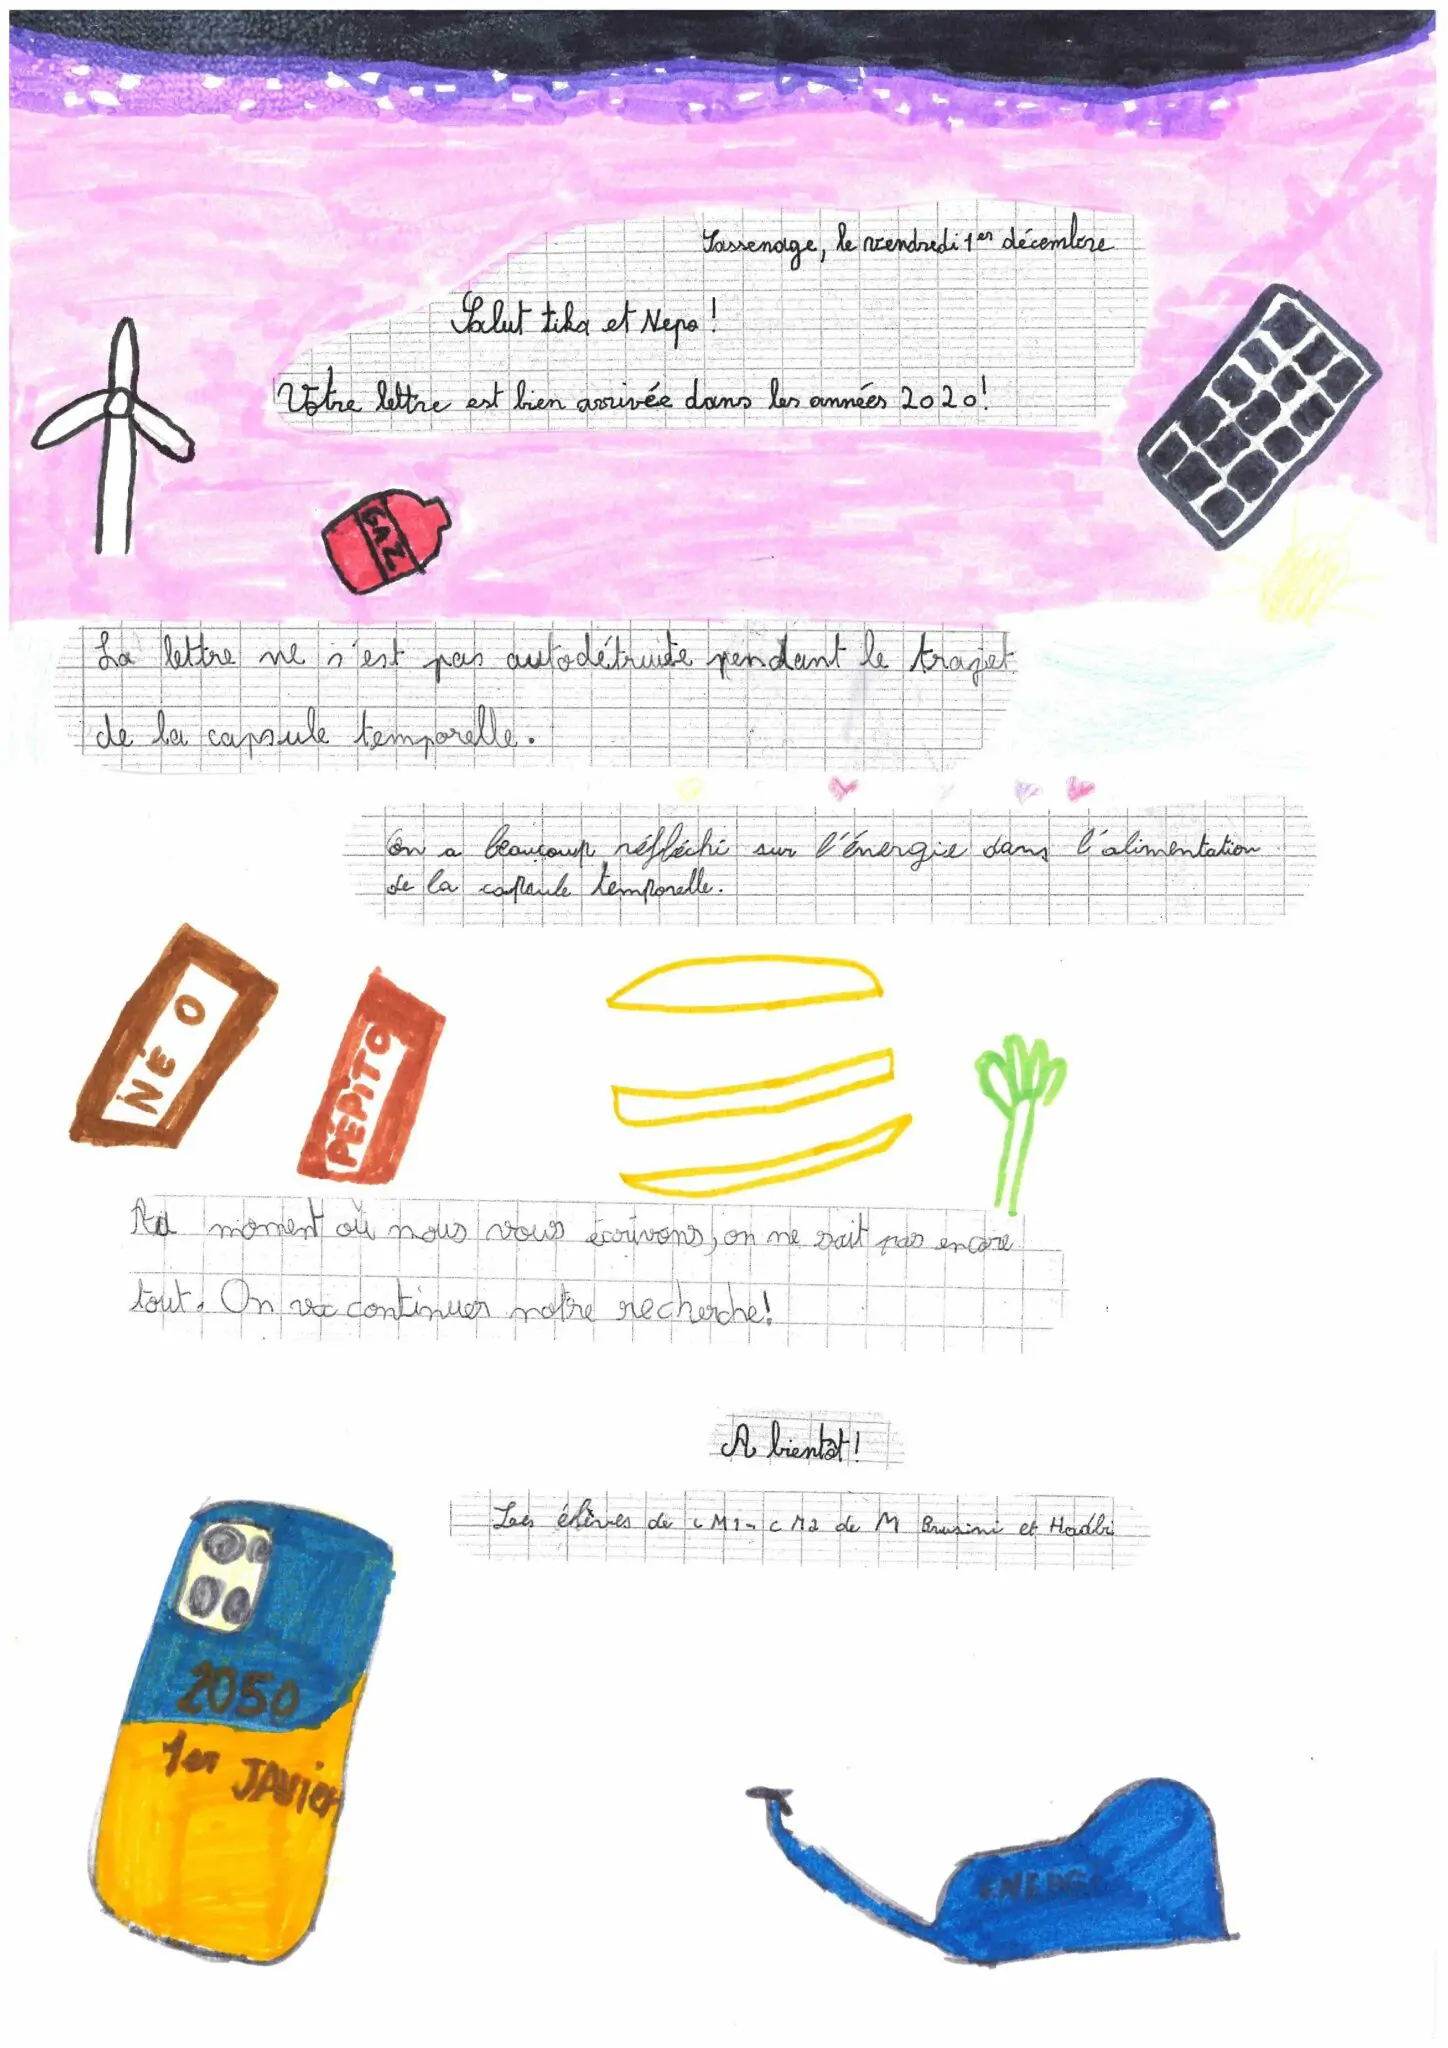 Sassenage, le vendredi 1er décembre
Salut Tika et Nepo !
Votre lettre est bien arrivée dans les années 2020!
GAZ
La lettre ne s'est pas autodétruite pendant le trajet
de la capsule temporelle.
On a beaucoup réfléchi sur l'énergie dans l'alimentation
de la capsule temporelle.
NÉO
PÉPITO
Au moment où nous vous écrivons, on ne sait pas encore
tout. On va continuer notre recherche!
A bientôt!
Les élèves de CM1-CM2 de M Brusini et Hadbi
2050
1er JAVier
ENERGI